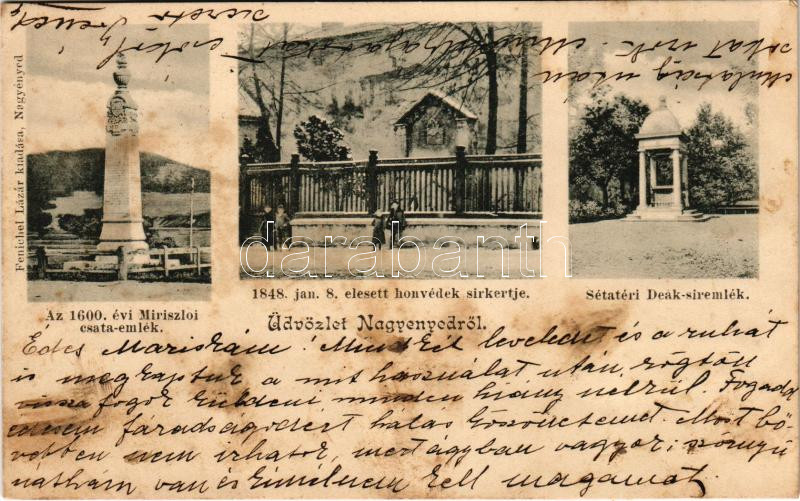 Fenichel Lázár kiadása, Nagyényed
Az 1600. évi Miriszloi
csata-emlék.
1848. jan. 8. elesett honvédek sirkertje.
Sétatéri Deák-siremlék.
Üdvözlet Nagyenyedről.
darabanth
Édes Mariskám! Mindkét leveledet és a ruhát
is megkaptuk a mit használat után rögtön
vissza fogok küldeni minden hiány nélkül. Fogadd
édesem fáradságodért hálás köszönetemet. Most bő-
vebben nem irhatok, mert ágyban vagyok; szörnyü
náthám van és kimélnem kell magamat.